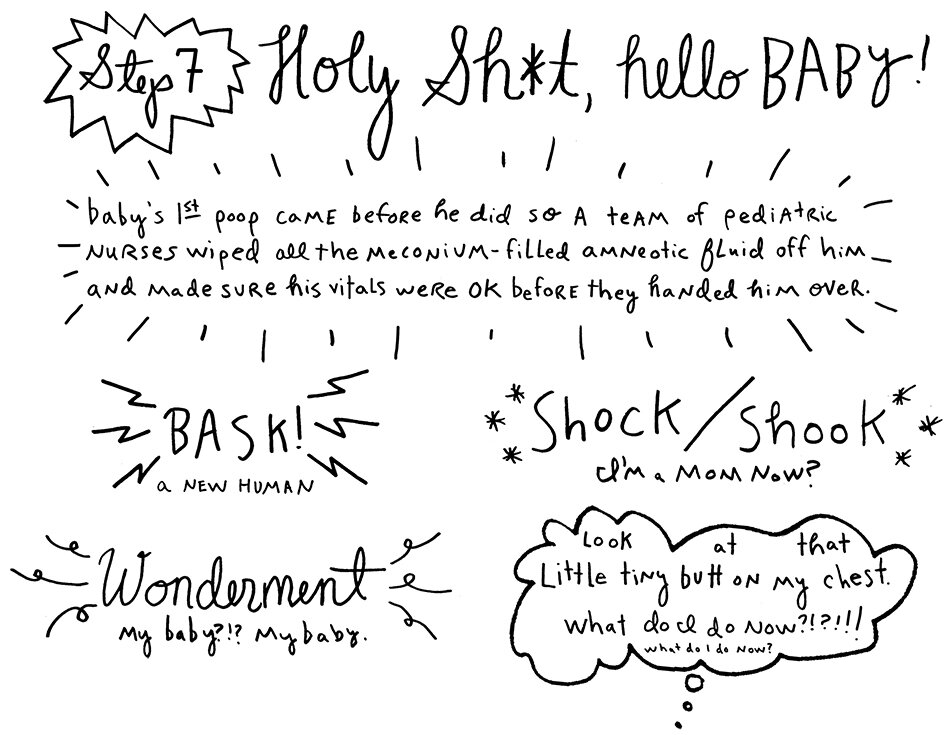 Step 7
Holy Sh*t, hello BABY!
baby's 1st poop came before he did so a team of pediatric
nurses wiped all the meconium-filled amneotic fluid off him
and made sure his vitals were OK before they handed him over.
BASK!
a NEW HUMAN
Shock/Shook
I'm a Mom Now?
Wonderment
My baby?!? My baby.
Look at that
Little tiny butt on my chest.
what do I do now?!?!!!
what do I do now?